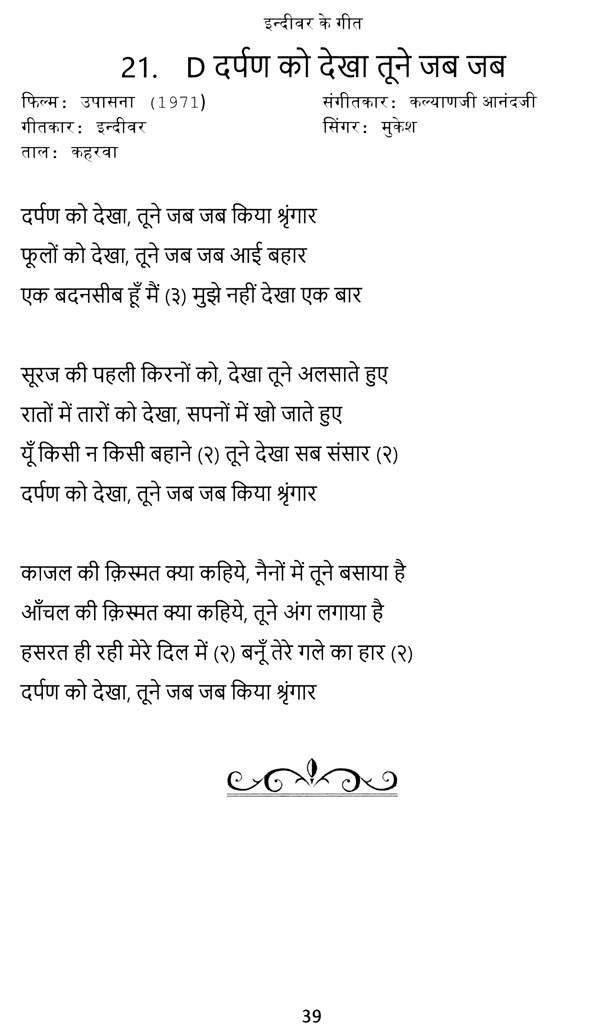 इन्दीवर के गीत
21. D दर्पण को देखा तूने जब जब
फिल्म: उपासना (1971) संगीतकार: कल्याणजी आनंदजी
गीतकार: इन्दीवर सिंगर: मुकेश
ताल: कहरवा
दर्पण को देखा, तूने जब जब किया श्रृंगार
फूलों को देखा, तूने जब जब आई बहार
एक बदनसीब हूँ मैं (३) मुझे नहीं देखा एक बार
सूरज की पहली किरनों को, देखा तूने अलसाते हुए
रातों में तारों को देखा, सपनों में खो जाते हुए
यूँ किसी न किसी बहाने (२) तूने देखा सब संसार (२)
दर्पण को देखा, तूने जब जब किया श्रृंगार
काजल की क़िस्मत क्या कहिये, नैनों में तूने बसाया है
आँचल की क़िस्मत क्या कहिये, तूने अंग लगाया है
हसरत ही रही मेरे दिल में (२) बनूँ तेरे गले का हार (२)
दर्पण को देखा, तूने जब जब किया श्रृंगार
39